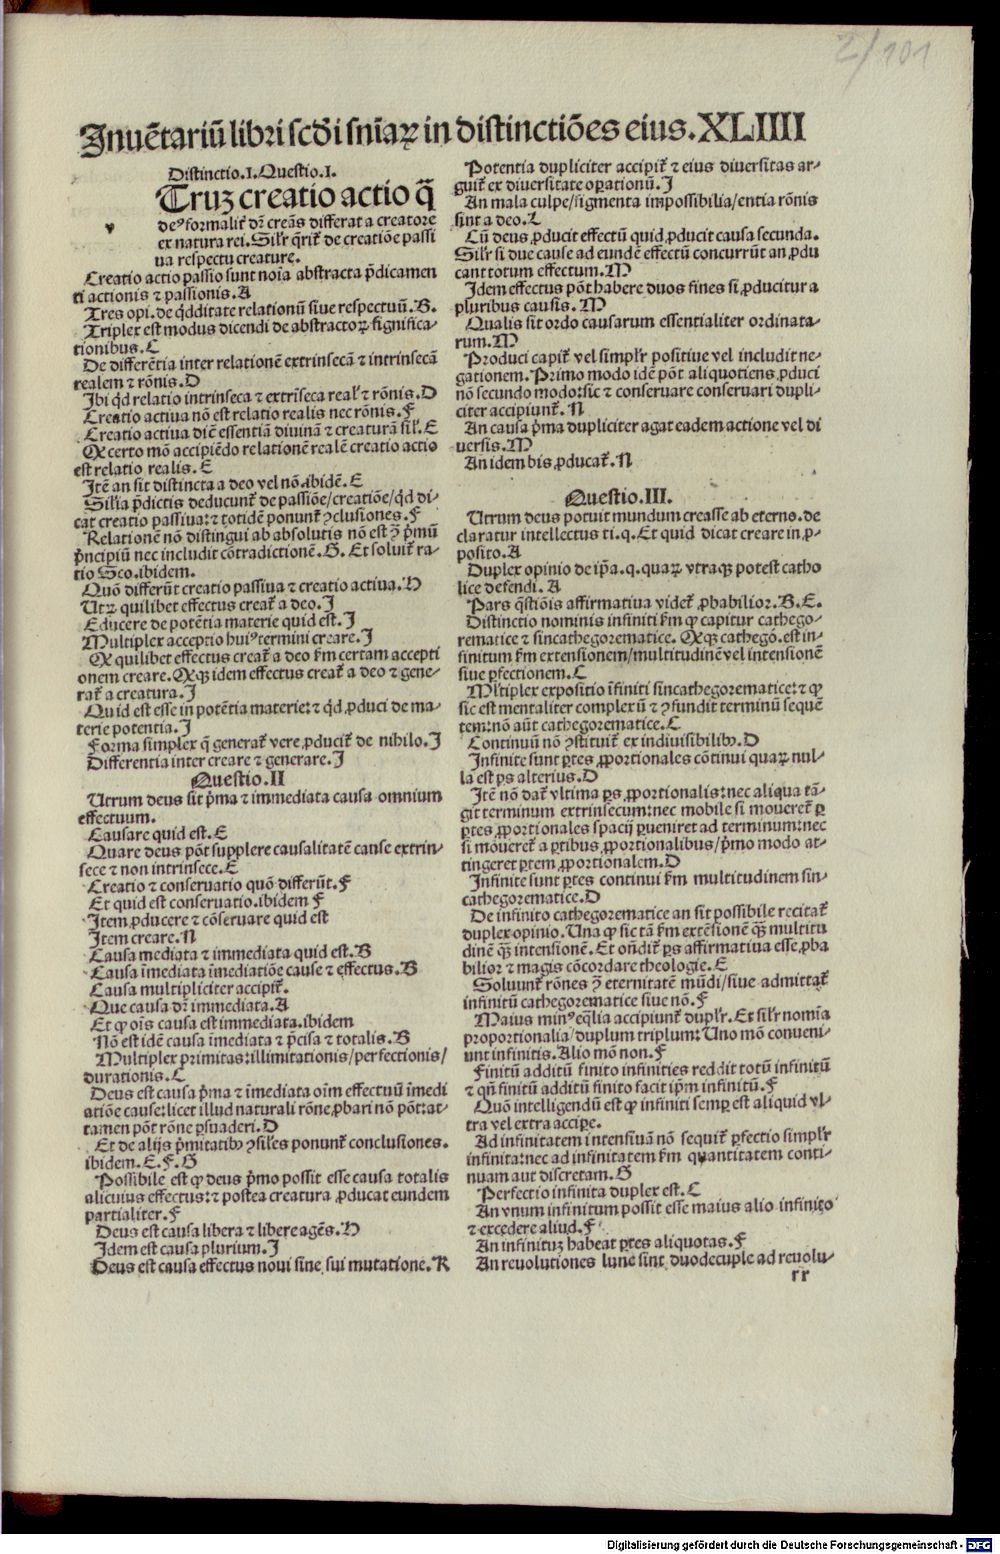 2/101
Inuẽtariũ libri scďi snĩaꝝ in distinctiões eius. XLIIII
Distinctio.I.Questio.I.
Truꝫ creatio actio q̃
v
deꝰ formaliť dr̃ creãs differat a creatore
ex natura rei. Silr̃ q̃riť de creatiõe passi
ua respectu creature.
Creatio actio passio sunt noĩa abstracta p̃dicamen
ti actionis ⁊ passionis. A
Tres opi. de q̇dditate relationũ siue respectuũ. B.
Triplex est modus dicendi de abstractoꝝ significa-
tionibus. C
De differẽtia inter relationẽ extrinsecã ⁊ intrinsecã
realem ⁊ rõnis. D
Ibi qď relatio intrinseca ⁊ extrĩseca real̃ ⁊ rõnis. D
Creatio actiua nõ est relatio realis nec rõnis. F
Creatio actiua diẽ essentiã diuinã ⁊ creaturã sil̃. E
Qꝙ certo mõ accipiẽdo relationẽ realẽ creatio actio
est relatio realis. E
Itẽ an sit distincta a deo vel nõ. ibidẽ. E
Silĩa p̃dictis deducunť de passiõe/creatiõe/qď di-
cat creatio passiua: ⁊ totidẽ ponunť ꝯclusiones. F
Relationẽ nõ distingui ab absolutis nõ est ꝯ p̃mũ
p̃ncipiũ nec includit cõtradictionẽ. G. Et soluiť ra-
tio Sco. ibidem.
Quõ differũt creatio passiua ⁊ creatio actiua. H
Utꝝ quilibet effectus creať a deo. I
Educere de potẽtia materie quid est. I
Multiplex acceptio huiꝰ termini creare. I
Qꝙ quilibet effectus creať a deo ẜm certam accepti
onem creare. Qꝙꝫ idem effectus creať a deo ⁊ gene-
rať a creatura. I
Quid est esse in potẽtia materie: ⁊ qď ꝓduci de ma-
terie potentia. I
Forma simplex q̃ generať vere ꝓduciť de nihilo. I
Differentia inter creare ⁊ generare. I
Questio.II
Utrum deus sit p̃ma ⁊ immediata causa omnium
effectuum.
Causare quid est. E
Quare deus põt supplere causalitatẽ cause extrin-
sece ⁊ non intrinsece. E
Creatio ⁊ conseruatio quõ differũt. F
Et quid est conseruatio. ibidem F
Item ꝓducere ⁊ cõseruare quid est
Item creare. N
Causa mediata ⁊ immediata quid est. B
Causa ĩmediata ĩmediatiõe cause ⁊ effectus. B
Causa multipliciter accipiť.
Que causa dr̃ immediata. A
Et ꝙ oĩs causa est immediata. ibidem
Nõ est idẽ causa ĩmediata ⁊ p̃cisa ⁊ totalis. B
Multiplex primitas: illimitationis/perfectionis/
durationis. C
Deus est causa p̃ma ⁊ ĩmediata oĩm effectuũ ĩmedi
atiõe cause: licet illud naturali rõne ꝓbari nõ põt: at-
tamen põt rõne ꝑsuaderi. D
Et de alijs p̃mitatibꝰ ꝯsiles ponunť conclusiones.
ibidem. E. F. G
Possibile est ꝙ deus p̃mo possit esse causa totalis
alicuius effectus: ⁊ postea creatura ꝓducat eundem
partialiter. F
Deus est causa libera ⁊ libere agẽs. H
Idem est causa plurium. I
Deus est causa effectus noui sine sui mutatione. K
Potentia dupliciter accipiť ⁊ eius diuersitas ar-
guiť ex diuersitate oꝑationũ. I
An mala culpe/figmenta impossibilia/entia rõnis
sint a deo. L
Cũ deus ꝓducit effectũ quid ꝓducit causa secunda.
Silr̃ si due cause ad eundẽ effectũ concurrũt an ꝓdu
cant totum effectum. M
Idem effectus põt habere duos fines si ꝓducitur a
pluribus causis. M
Qualis sit ordo causarum essentialiter ordinata-
rum. M
Produci capiť vel simplr̃ positiue vel includit ne-
gationem. Primo modo idẽ põt aliquotiens ꝓduci
nõ secundo modo: sic ⁊ conseruare conseruari dupli-
citer accipiunť. N
An causa p̃ma dupliciter agat eadem actione vel di
uersis. M
An idem bis ꝓducať. N
Questio.III.
Utrum deus potuit mundum creasse ab eterno. de
claratur intellectus ti. q. Et quid dicat creare in ꝓ-
posito. A
Duplex opinio de ip̃a. q. quaꝝ vtraqꝫ potest catho
lice defendi. A
Pars q̃stiõis affirmatiua videť ꝓbabilior. B. E.
Distinctio nominis infiniti ẜm ꝙ capitur cathego-
rematice ⁊ sincathegorematice. Qꝙꝫ cathegõ. est in-
finitum ẜm extensionem/multitudinẽ vel intensionẽ
siue ꝑfectionem. C
Ml̃tiplex expositio ĩfiniti sincathegorematice: ⁊ ꝙ
sic est mentaliter complexũ ⁊ ꝯfundit terminũ sequẽ
tem: nõ aũt cathegorematice. C
Continuũ nõ ꝯstituiť ex indiuisibilibꝰ. D
Infinite sunt ꝑtes ꝓportionales cõtinui quaꝝ nul-
la est ꝑs alterius. D
Itẽ nõ dať vltima ꝑs ꝓportionalis: nec aliqua tã-
git terminum extrinsecum: nec mobile si mouereť ꝑ
ꝑtes ꝓportionales spacij ꝑueniret ad terminum: nec
si mouereť a ꝑtibus ꝓportionalibus/p̃mo modo at-
tingeret ꝑtem ꝓportionalem. D
Infinite sunt ꝑtes continui ẜm multitudinem sin-
cathegorematice. D
De infinito cathegorematice an sit possibile recitať
duplex opinio. Una ꝙ sic tã ẜm extẽsionẽ q̃ꝫ multitu
dinẽ q̃ꝫ intensionẽ. Et oñdiť ꝑs affirmatiua esse ꝓba
bilior ⁊ magis cõcordare theologie. E
Soluunť rõnes ꝯ eternitatẽ mũdi/siue admittať
infinitũ cathegorematice siue nõ. F
Maius minꝰ eq̃lia accipiunť duplr̃. Ex silr̃ nomĩa
proportionalia/duplum triplum: Uno mõ conueni-
unt infinitis. Alio mõ non. F
Finitũ additũ finito infinities reddit totũ infinitũ
⁊ qñ finitũ additũ finito facit ip̃m infinitũ. F
Quõ intelligendũ est ꝙ infiniti semꝑ est aliquid vl-
tra vel extra accipe.
Ad infinitatem intensiuã nõ sequiť ꝑfectio simplr̃
infinita: nec ad infinitatem ẜm quantitatem conti-
nuam aut discretam. G
Perfectio infinita duplex est. C
An vnum infinitum possit esse maius alio infinito
⁊ excedere aliud. F
An infinituꝫ habeat ꝑtes aliquotas. F
An reuolutiones lune sint duodecuple ad reuolu-
rr
Digitalisierung gefördert durch die Deutsche Forschungsgemeinschaft - DFG